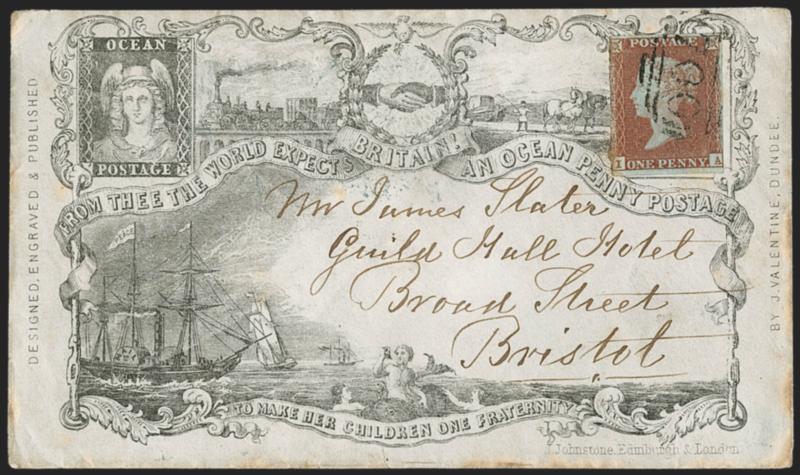 OCEAN
POSTAGE
POSTAGE
I ONE PENNY A
DESIGNED, ENGRAVED & PUBLISHED
BY J. VALENTINE, DUNDEE.
FROM THEE THE WORLD EXPECTS BRITAIN! AN OCEAN PENNY POSTAGE
PEACE
Mr James Slater
Guild Hall Hotel
Broad Street
Bristol
TO MAKE HER CHILDREN ONE FRATERNITY
J. Johnstone, Edinburgh & London